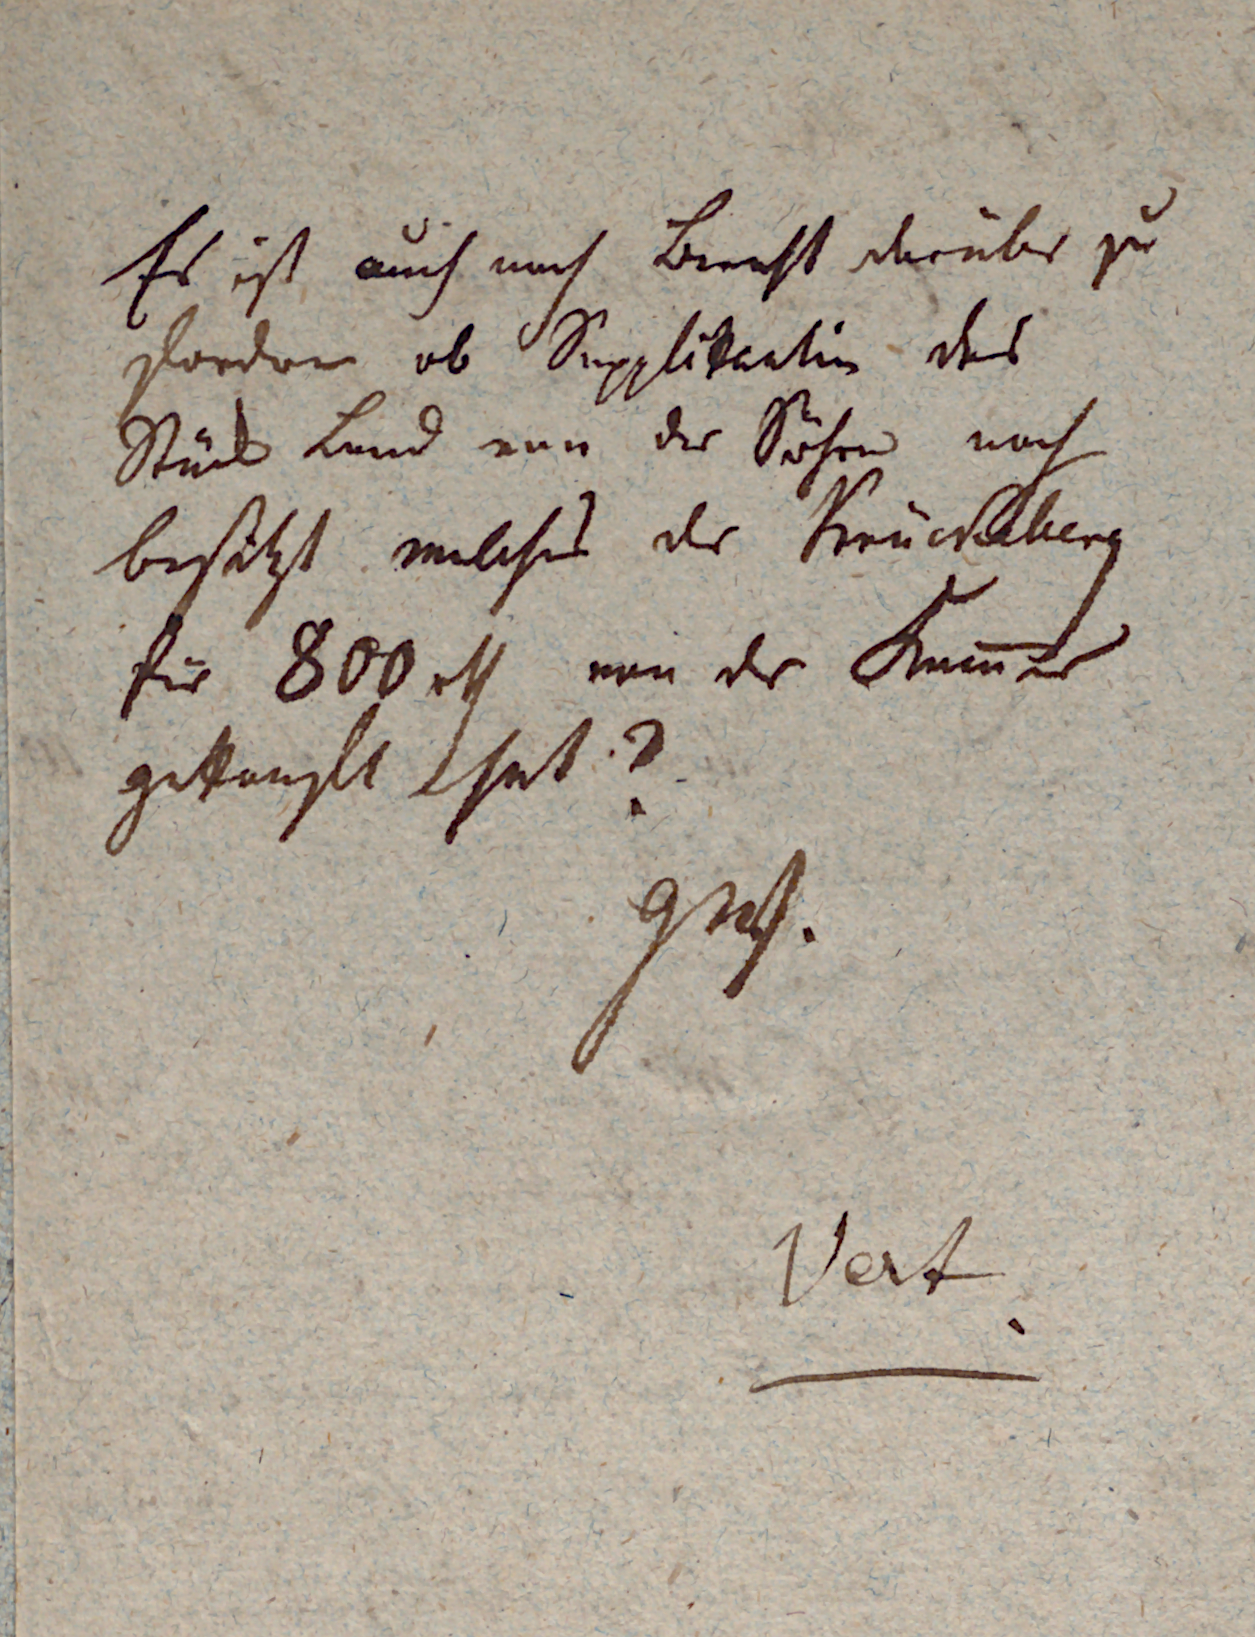 Es ist auch noch Bericht darüber zu
fordern ob Supplikantin das
Stück Land von der Söhre noch
besitzt welches der Krückeberg
für 800 rth von der Kammer
gekauft hat?
Vert